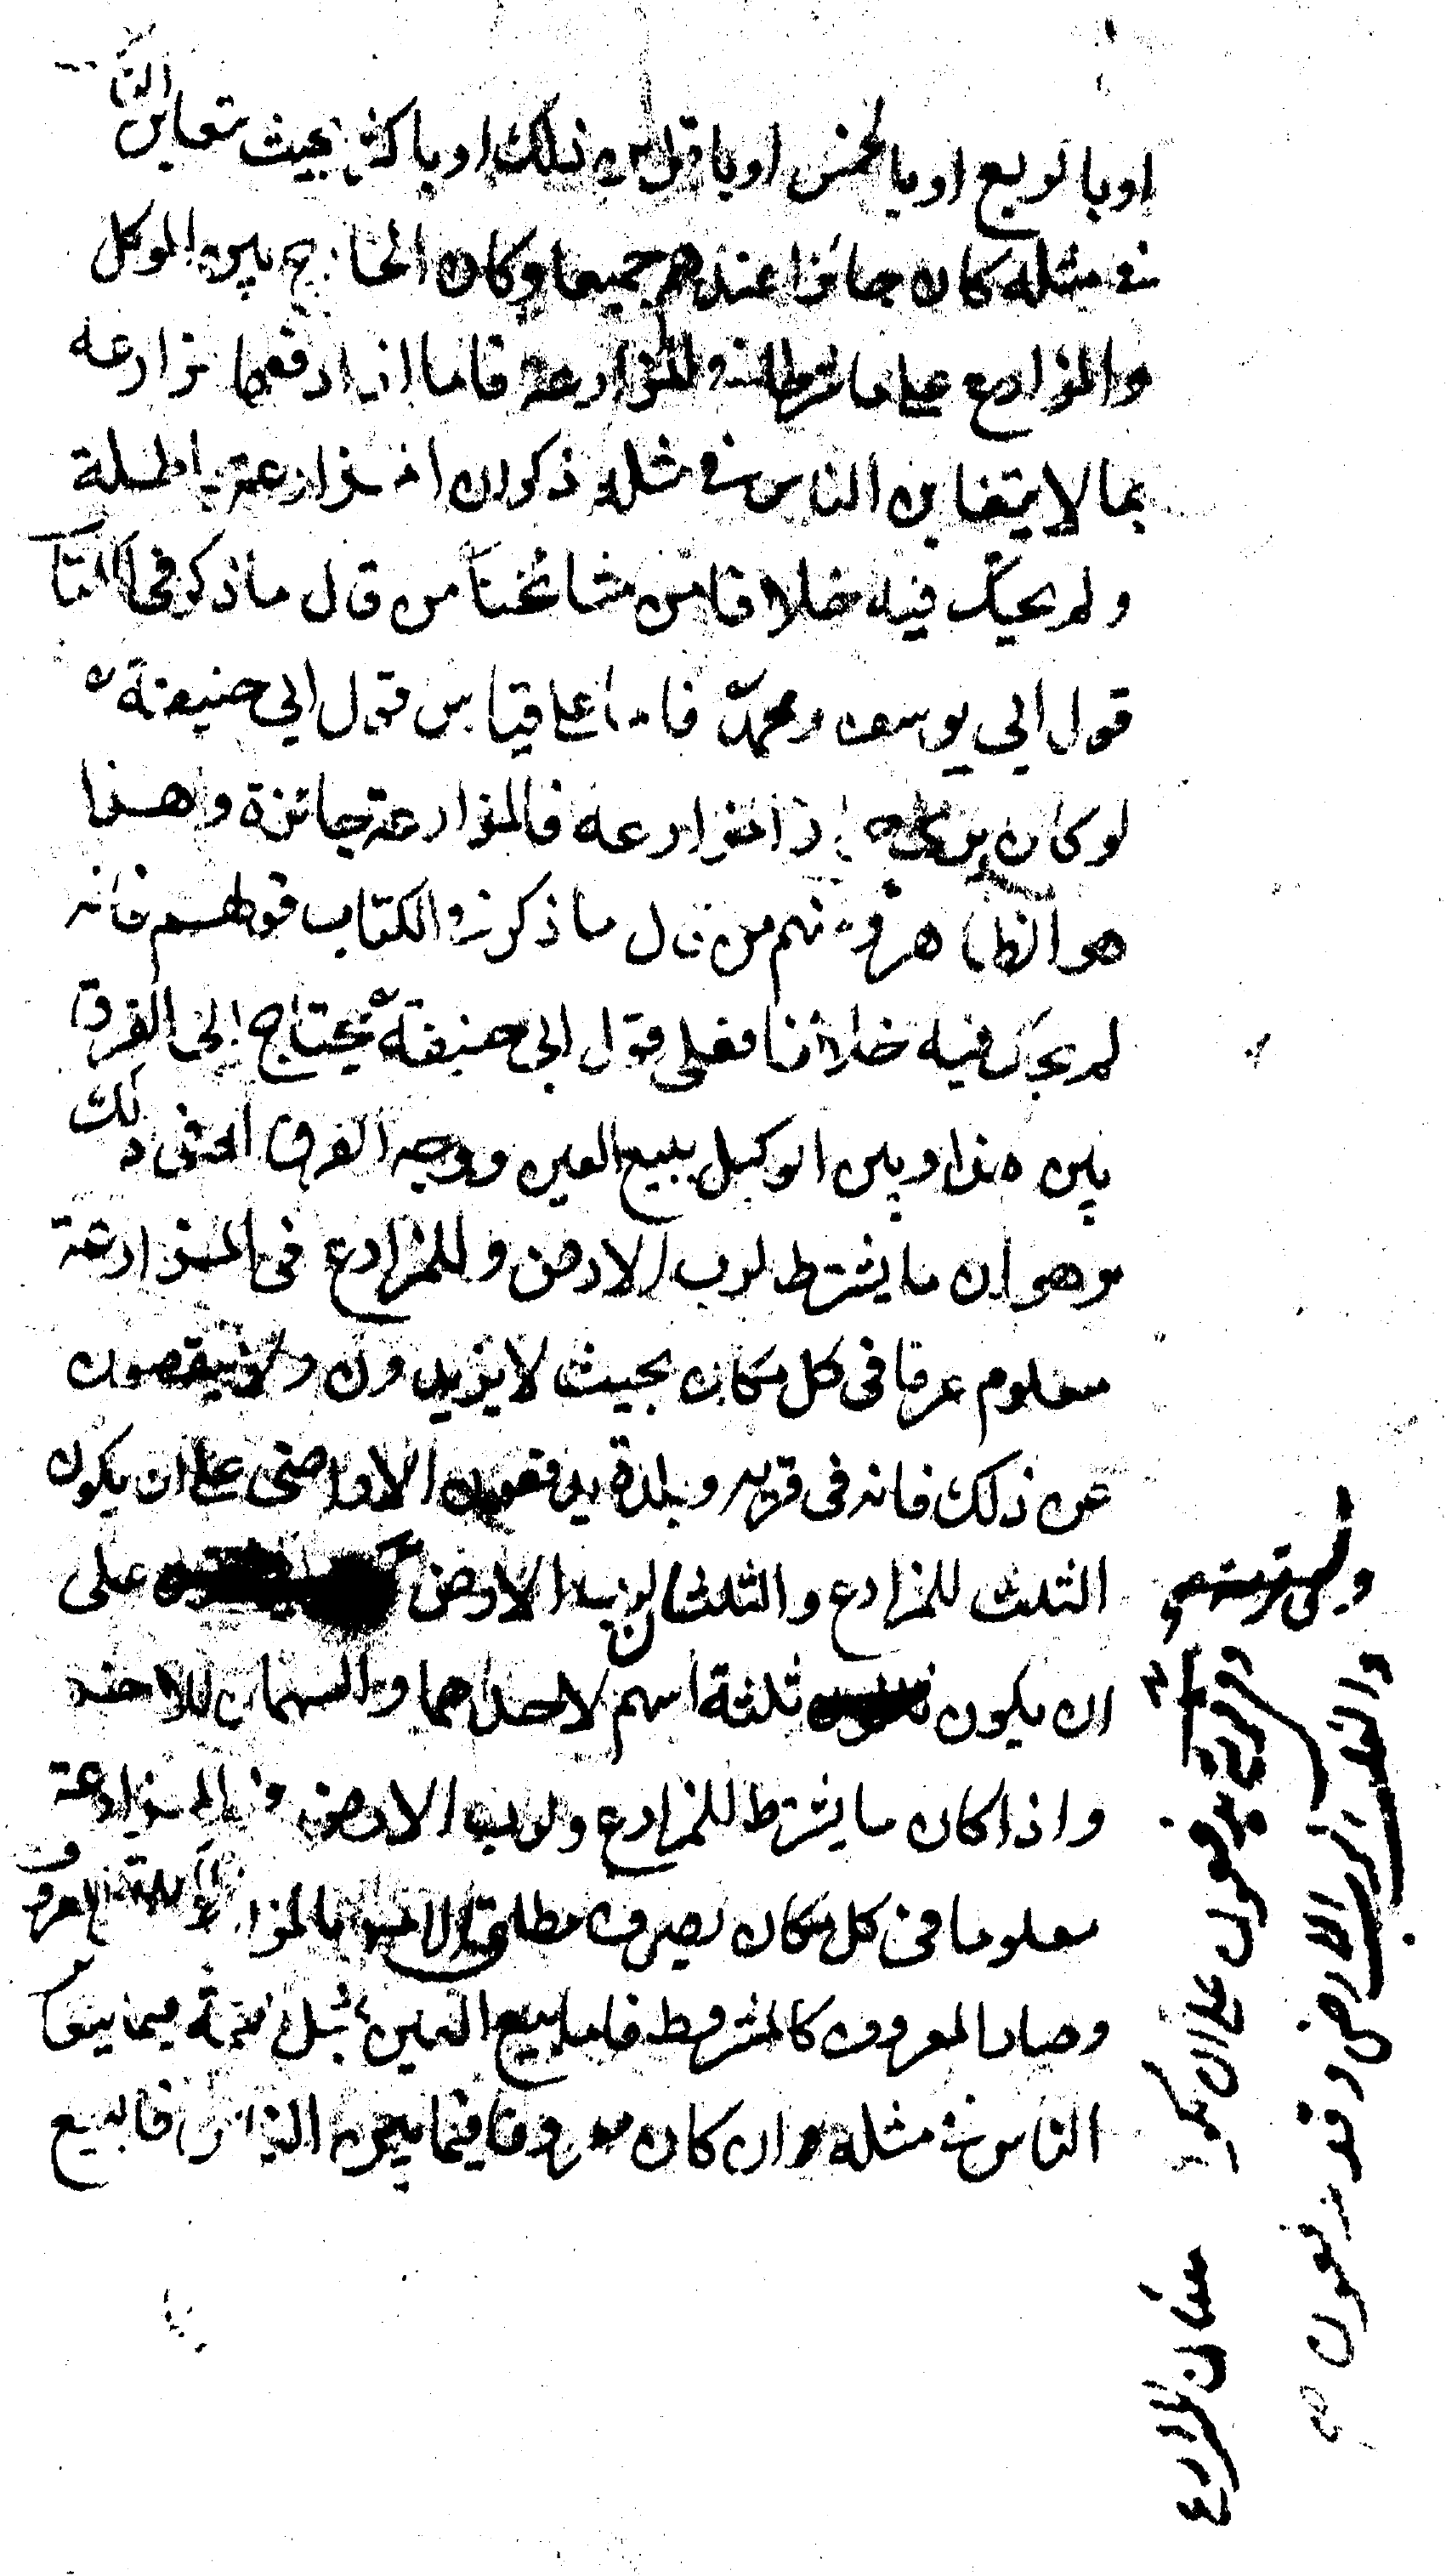 او بالربع او بالخمس او باقل من ذلك او باكثر بحيث يتغابن النا
فى مثله كان جائزا عندهم جميعا وكان الخارج بين الموكل
والمزارع على ما شرطا فى المزارعة فاما اذا دفعها مزارعة
بما لا يتغابن الناس فى مثله ذكر ان المزارعة باطلة
ولم يحك فيه خلافا من مشائخنا من قال ما ذكر فى الكتا
قول ابى يوسف ومحمد فاما على قياس قول ابى حنيفة
لو كان مزارعة فالمزارعة جائزة وهذا
هو الظاهر ومنهم من قال ما ذكر فى الكتاب قولهم فانه
لم يحك فيه خلافا فعلى قول ابى حنيفة يحتاج الى الفرق
بين هذا وبين الوكيل ببيع العين ووجه الفرق فى ذلك
هو ان ما يشترط لرب الارض وللمزارع فى المزارعة
معلوم عرفا فى كل مكان بحيث لا يزيدون ولا ينقصون
عن ذلك فانه فى قرية وبلدة يدفعون الاراضى على ان يكون
الثلث للمزارع والثلثان لرب الارض على
ان يكون ثلثة اسهم لاحدهما والسهمان للاخر
واذا كان ما يشترط للمزارع ولرب الارض فى المزارعة
معلوما فى كل مكان يصرف مطلق الامر بالمزارعة المعروف
وصار المعروف كالمشروط فاما بيع العين بمثل قيمة فيما يتغا
الناس فى مثله وان كان معروفا فيما بين الناس فالبيع
وفى قرية
يدفعون على ان يكون الثلثان للمزارع
والثلث لرب الارض وقد يدفعون